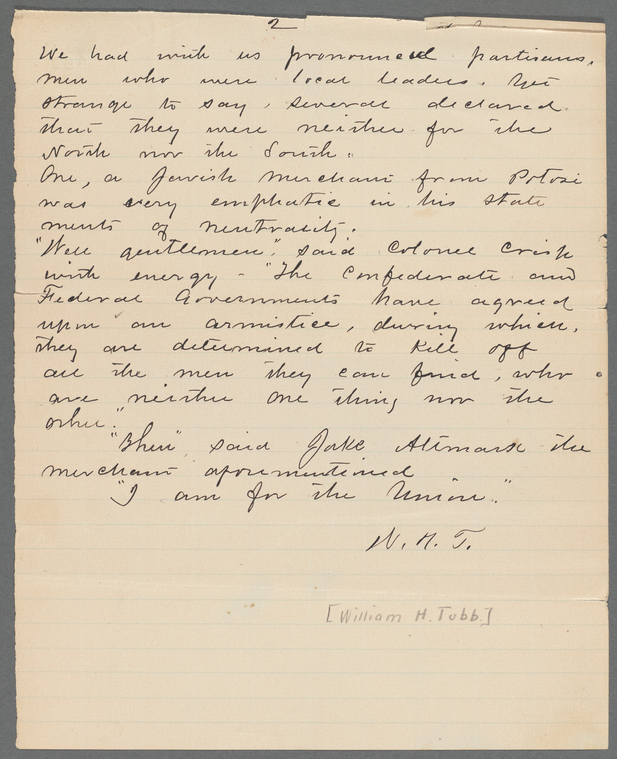 2
We had with us pronounced partisans,
men who were local leaders. Yet
strange to say, several declared
that they were neither for the
North nor the South.
One, a Jewish merchant from Potosi
was very emphatic in his state
ments of neutrality.
"Well gentlemen", said Colonel Crisp
with energy - "The Confederate and
Federal Governments have agreed
upon an armistice, during which,
they are determined to kill off
all the men they can find, who
are neither one thing nor the
other."
"Then" said Jake Altmark the
merchant aforementioned
"I am for the Union."
W. H. T.
[William H. Tubb.]